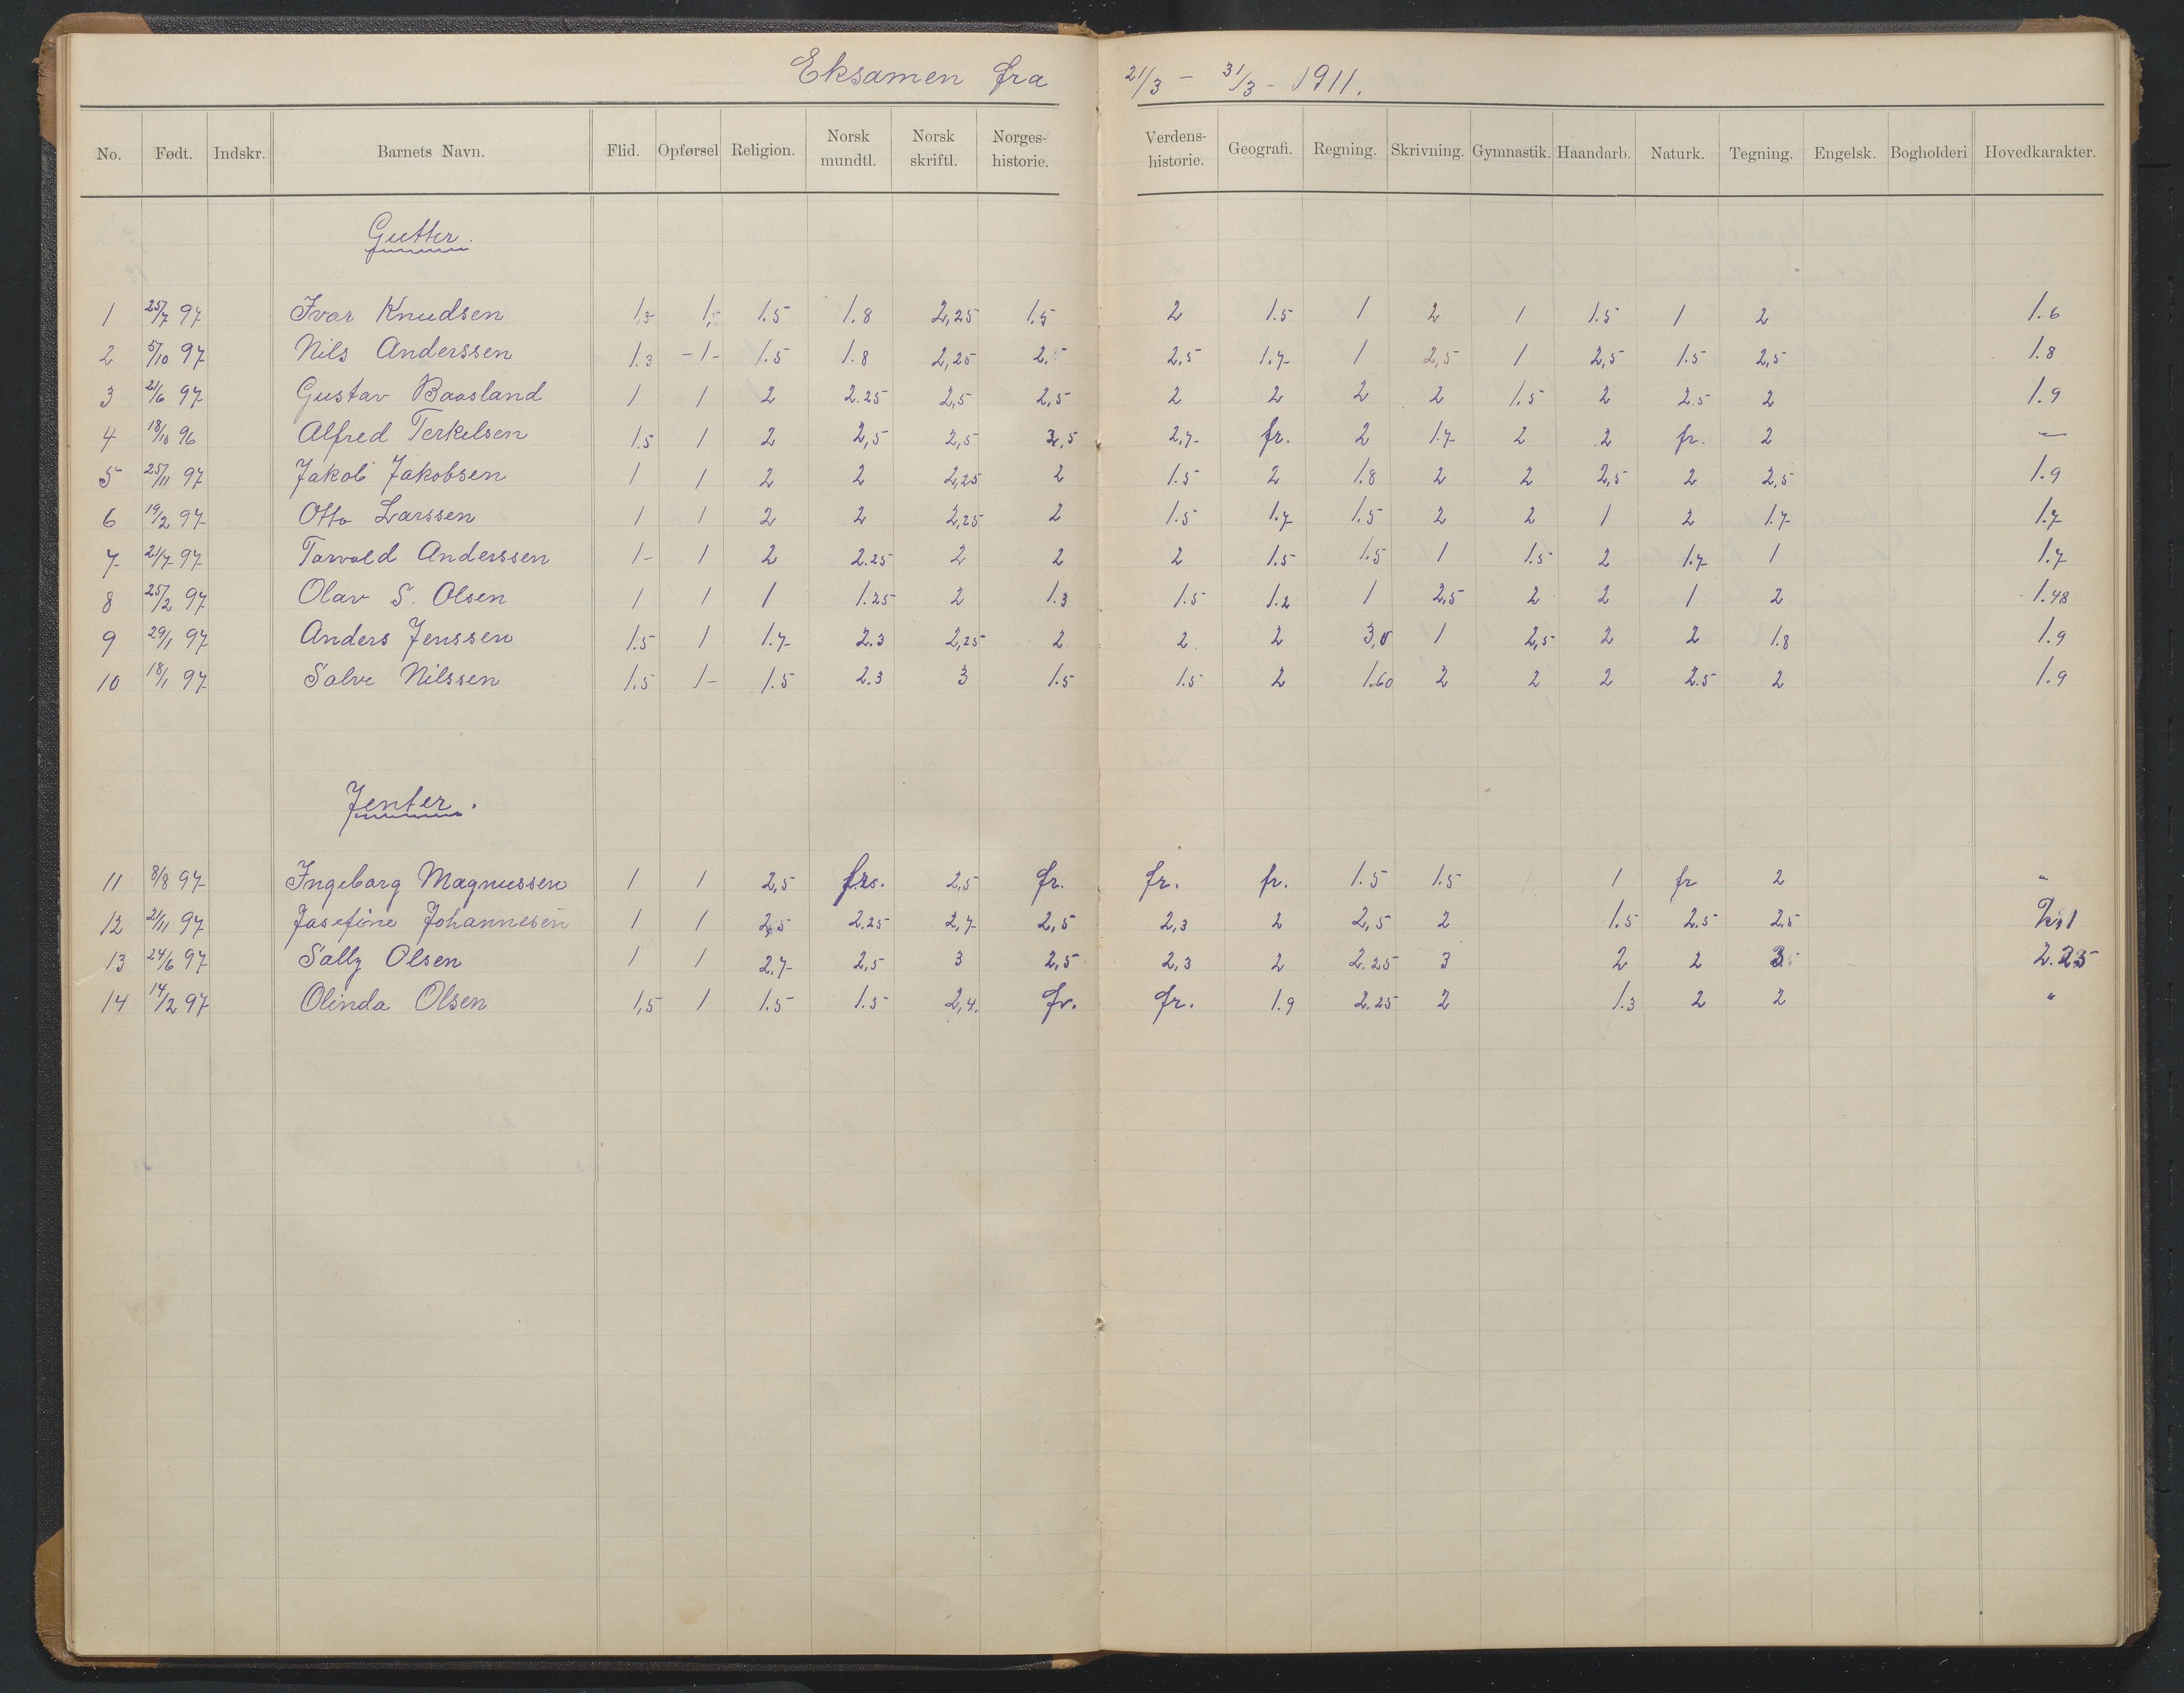 Eksamen fra 21/3 - 31/3 - 1911.
No. Født. Indskr. Barnets Navn. Flid. Opførsel Religion. Norsk mundtl. Norsk skriftl. Norges-historie. Verdens-historie. Geografi. Regning. Skrivning. Gymnastik. Haandarb. Naturk. Tegning. Engelsk. Bogholderi Hovedkarakter.
Gutter.
1 25/7 97 Ivar Knudsen 1,3 1,- 1.5 1.8 2,25 1.5 2 1.5 1 2 1 1.5 1 2 1.6
2 5/10 97 Nils Anderssen 1.3 -1- 1.5 1.8 2,25 2.5 2,5 1.7 1 2,5 1 2,5 1.5 2,5 1.8
3 21/6 97 Gustav Baasland 1 1 2 2.25 2,5 2,5 2 2 2 2 1.5 2 2.5 2 1.9
4 18/10 96 Alfred Terkelsen 1.5 1 2 2,5 2,5 2,5 2,7 fr. 2 1.7 2 2 fr. 2 —
5 25/11 97 Jakob Jakobsen 1 1 2 2 2,25 2 1.5 2 1.8 2 2 2,5 2 2,5 1.9
6 19/2 97 Otto Larssen 1 1 2 2 2,25 2 1.5 1.7 1.5 2 2 1 2 1.7 1.7
7 21/7 97 Torvald Anderssen 1- 1 2 2.25 2 2 2 1.5 1.5 1 1.5 2 1.7 1 1.7
8 25/2 97 Olav S. Olsen 1 1 1 1.25 2 1.3 1.5 1.2 1 2,5 2 2 1 2 1.48
9 29/1 97 Anders Jenssen 1.5 1 1.7 2.3 2,25 2 2 2 3,0 1 2,5 2 2 1.8 1.9
10 18/1 97 Salve Nilssen 1.5 1- 1.5 2.3 3 1.5 1.5 2 1.60 2 2 2 2.5 2 1.9
Jenter.
11 8/8 97 Ingeborg Magnussen 1 1 2,5 2,5 fr. fr. fr. 1.5 1.5 1 fr 2 "
12 21/11 97 Josefine Johannesen 1 1 2,5 2.25 2,7 2,5 2,3 2 2,5 2 1.5 2.5 2,5
13 24/6 97 Sally Olsen 1 1 2.7 2,5 3 2,5 2,3 2 2.25 3 2 2 3 2.25
14 14/2 97 Olinda Olsen 1,5 1 1.5 1.5 2,4. fr. fr. 1.9 2.25 2 1.3 2 2 "